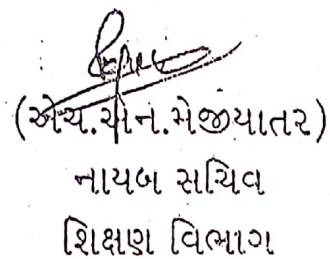 (એચ.એન.મેજીયાતર)
નાયબ સચિવ
શિક્ષણ વિભાગ